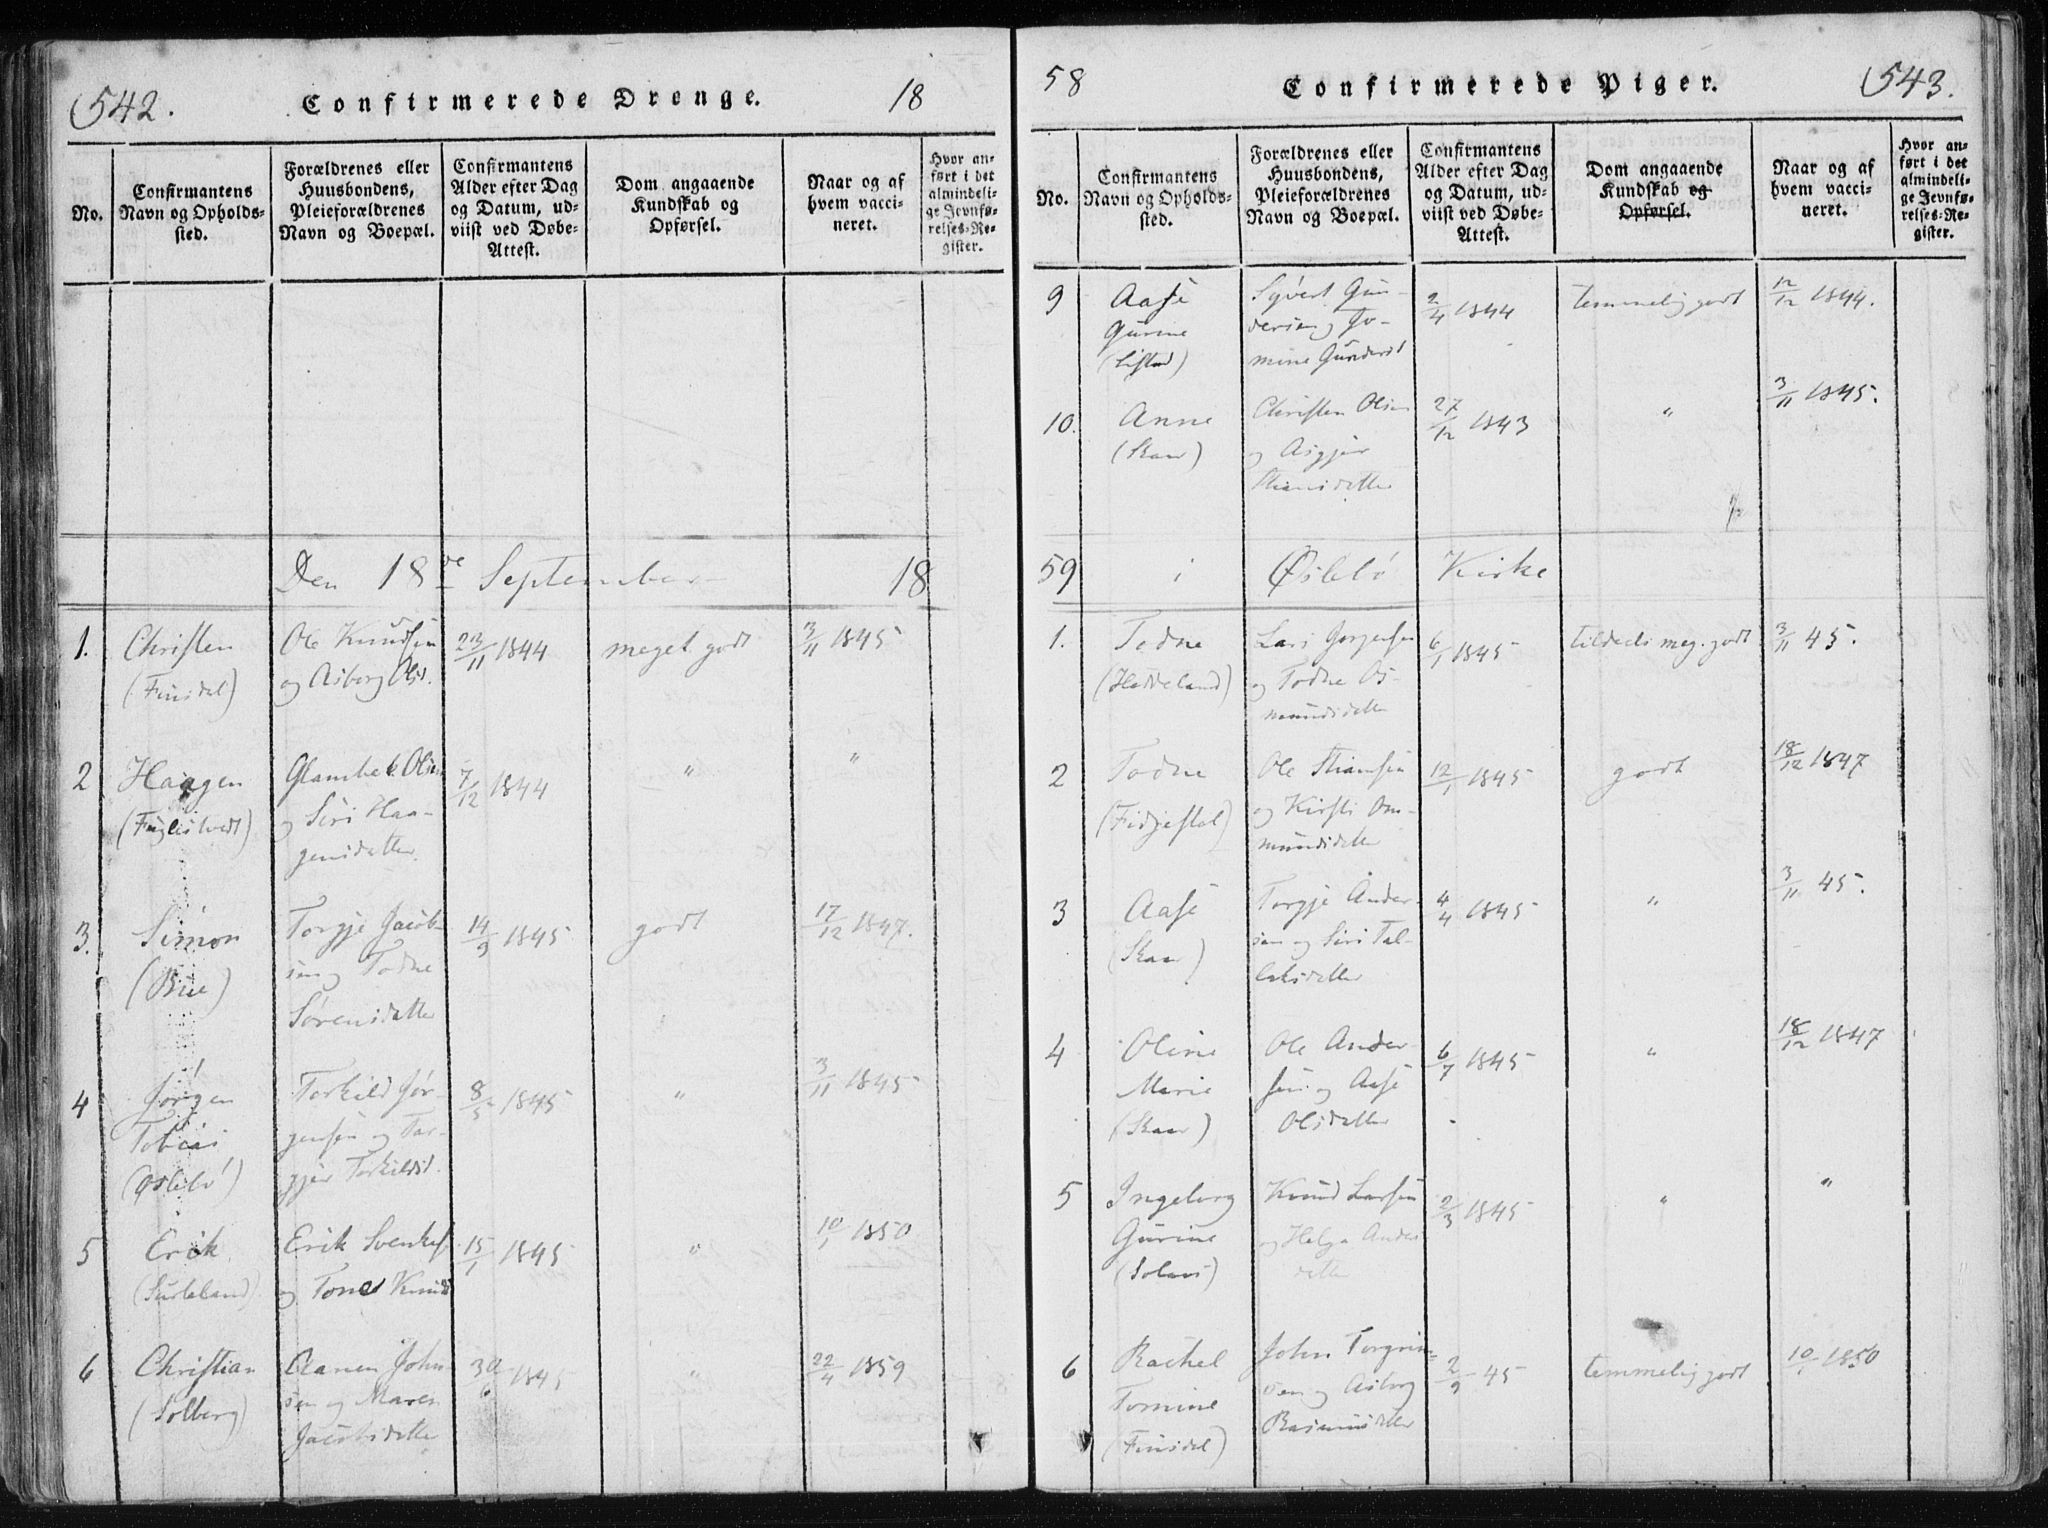 542.
Confirmerede Drenge.
18
No.
Confirmantens
Navn og Opholds-
sted.
Forældrenes eller
Huusbondens,
Pleieforældrenes
Navn og Boepæl.
Confirmantens
Alder efter Dag
og Datum, ud-
viist ved Døbe-
Attest.
Dom angaaende
Kundskab og
Opførsel.
Naar og af
hvem vacci-
neret.
Hvor an-
ført i det
almindeli-
ge Jevnfø-
relses-Re-
gister.
Den 18de September 18
1.
Christen
(Finsdal)
Ole Knudsen
og Asborg Olsd.
23/11 1844
meget godt
3/11 1845
2
Haagen
(Fuglestvedt)
Glambek Olsen
og Siri Haa-
gensdatter
7/12 1844
"
"
3.
Simon
(Bue)
Torgje Jacob-
sen og Todne
Sørensdatter
14/9 1845
godt
17/12 1847.
4
Jørgen
Tobias
(Øslebø)
Torkild Jør-
gensen og Tor-
gjer Torkildsd.
8/5 1845
"
3/11 1845
5
Erik
(Surteland)
Erik Svenkes.
og Tone Knudsd
15/1 1845
"
10/1 1850
6
Christian
(Solberg)
Clanen John-
sen og Maren
Jacobsdatter
30/6 1845
"
22/4 1859
58
Confirmerede Piger.
543.
No.
Confirmantens
Navn og Opholds-
sted.
Forældrenes eller
Huusbondens,
Pleieforældrenes
Navn og Boepæl.
Confirmantens
Alder efter Dag
og Datum, ud-
viist ved Døbe-
Attest.
Dom angaaende
Kundskab og
Opførsel.
Naar og af
hvem vacci-
neret.
Hvor an-
ført i det
almindeli-
ge Jevnfø-
relses-Re-
gister.
9
Aase
Gurine
(Listad)
Syvert Gun-
dersen og To-
mine Gundersd
2/4 1844
temmelig godt
12/12 1844.
10.
Anne
(Skaar)
Christen Olsen
og Asgjer
Stiansdatter
27/12 1843
"
3/11 1845.
59 i Øslebø Kirke
1.
Todne
(Heddeland)
Lars Jørgensen
og Todne Os-
mundsdatter
6/1 1845
tildeels meg. godt
3/11 45.
2
Todne
(Fidjestøl)
Ole Stiansen
og Kirsti Om-
mundsdatter
12/1 1845
godt
18/12 1847
3
Aase
(Skaar)
Torgje Ander-
sen og Siri Tal-
laksdatter
4/4 1845
"
3/11 45.
4
Oline
Marie
(Skaar)
Ole Ander-
sen og Aase
Olsdatter
6/7 1845
"
18/12 1847
5
Ingeborg
Gurine
(Solaas)
Knud Larsen
og Helga Anders
datter
2/3 1845
"
"
6
Rachel
Tomine
(Finsdal)
John Torgrim-
sen og Asborg
Rasmusdatter
2/9 45
temmelig godt
10/1 1850